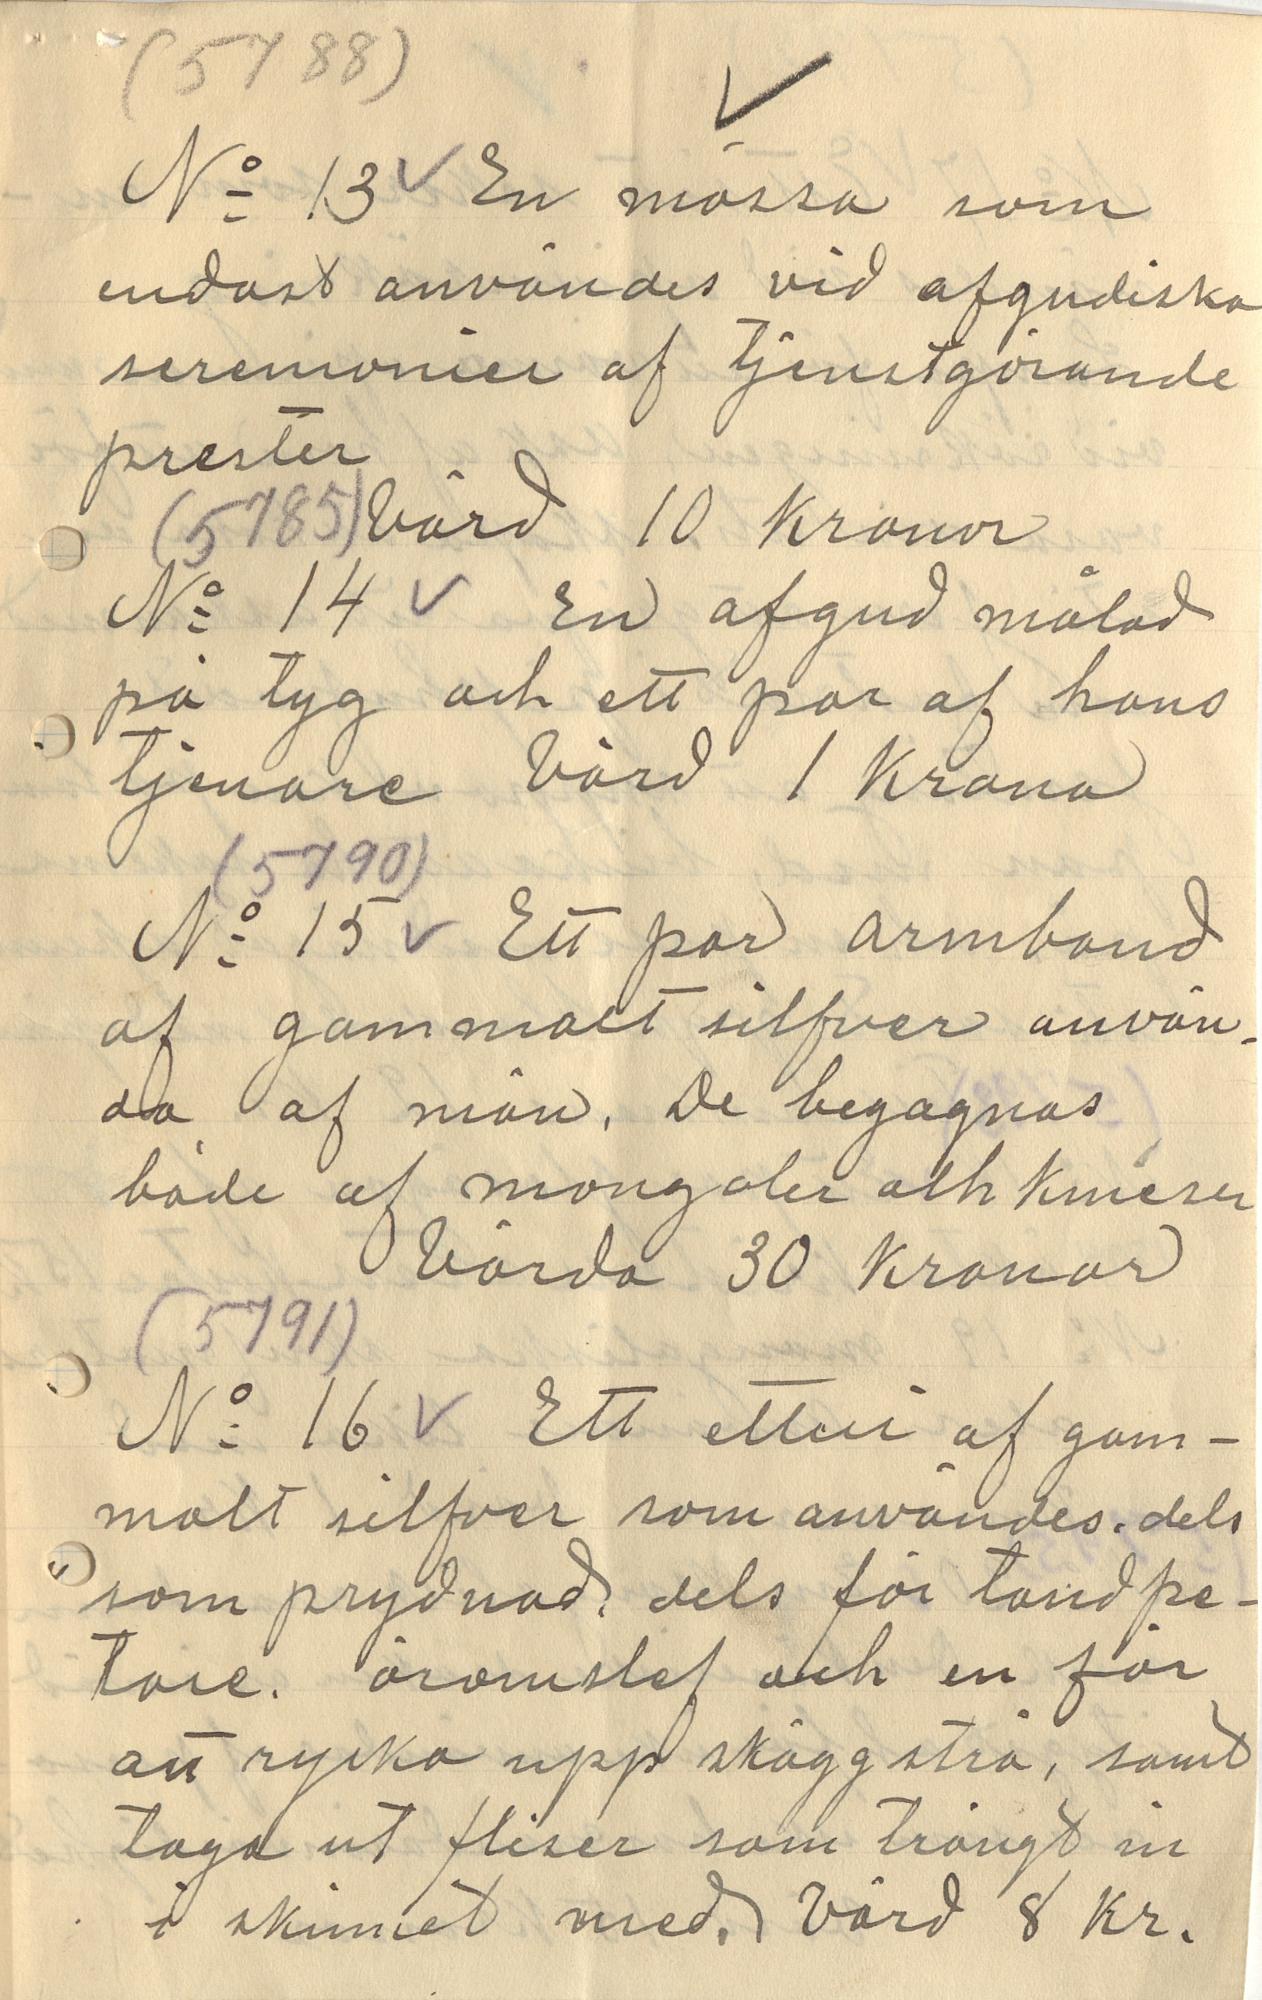 (5788) ✓
No 13 ✓ En mössa som
endast användes vid afgudiska
seremonier af tjenstgörande
prester
(5785) Värd 10 Kronor
No 14 ✓ En afgud målad
på tyg och ett par af hans
tjenare Värd 1 Krona
(5790)
No 15 ✓ Ett par armband
af gammalt silfver använ-
da af män. De begagnas
både af mongoler och kineser
Värda 30 Kronor
(5791)
No 16 ✓ Ett ettui af gam-
malt silfver som användes. dels
som prydnad. dels för tandpe-
tare. öronslef och en för
att rycka upp skäggstrå, samt
taga ut fliser som trängt in
i skinnet med. Värd 8 Kr.